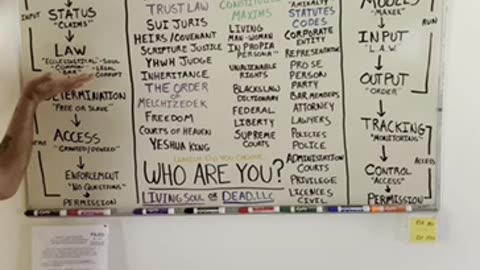 INPUT
STATUS
"CLAIMS"
LAW
"ECCLESIASTICAL" - SOUL
"COMMON" - LEGAL
"BAR" - CORRUPT
DETERMINATION
"FREE OR SLAVE"
ACCESS
"GRANTED/DENIED"
ENFORCEMENT
"NO QUESTIONS"
PERMISSION
TRUST LAW
SUI JURIS
HEIRS/COVENANT
SCRIPTURE JUSTICE
YHWH JUDGE
INHERITANCE
THE ORDER
OF
MELCHIZEDEK
FREEDOM
COURTS OF HEAVEN
YESHUA KING
MAXIMS
LIVING
MAN-WOMAN
IN PROPIA
PERSONA"
UNALIENABLE
RIGHTS
BLACKSLAW
DICTIONARY
FEDERAL
LIBERTY
SUPREME
COURTS
"ADMIRALTY
STATUTES
CODES
CORPORATE
ENTITY
REPRESENTATIVE
PRO SE
PERSON
PARTY
BAR MEMBERS
ATTORNEY
LAWYERS
POLICIES
POLICE
ADMINISTRATION
COURTS
PRIVILEGE
LICENCES
CIVIL
WHO ARE YOU?
LIVING SOUL OR DEAD, LLC
"MAKER"
RUN
INPUT
"L.A.W."
OUTPUT
"ORDER"
TRACKING
"MONITORING"
ACCESS
CONTROL
"ACCESS"
PERMISSION